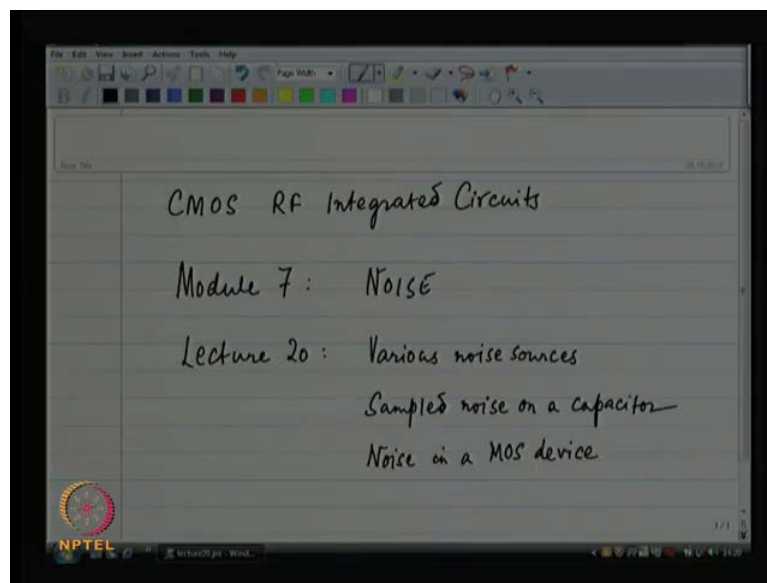 File Edit View Insert Actions Tools Help
Page Width
B I
Note Title
CMOS RF Integrated Circuits
Module 7 : NOISE
Lecture 20 : Various noise sources
Sampled noise on a capacitor
Noise in a MOS device
1/1
NPTEL
lecture20.jnt - Wind...
14:20